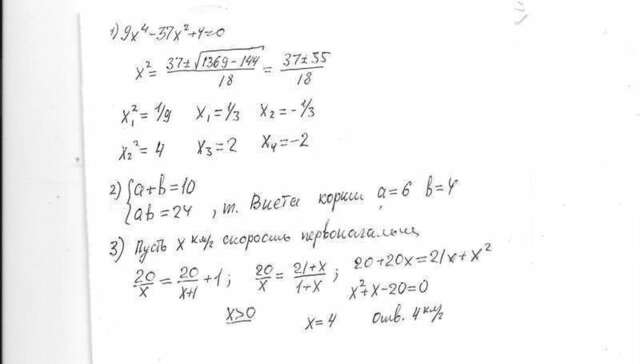 1) 9x⁴-37x²+4=0
x²= 37±√1369-144 / 18 = 37±35 / 18
x₁²=1/9 x₁=1/3 x₂=-1/3
x₂²=4 x₃=2 x₄=-2
2) {a+b=10
{ab=24 , т. Виета корни a=6 b=4
3) Пусть x км/ч скорость первоначальн
20/x = 20/x+1 +1; 20/x = 21+x/1+x; 20+20x=21x+x²
x²+x-20=0
x>0 x=4 Отв. 4 км/ч